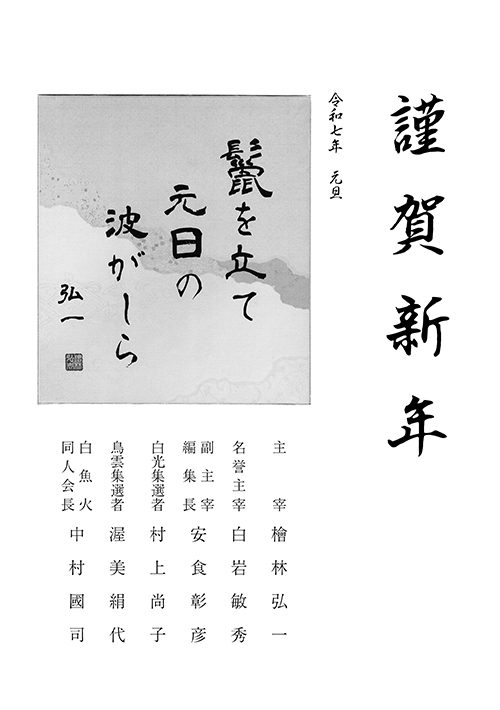 謹賀新年
令和七年 元旦
鬣を立て
元日の
波がしら
弘一
主宰 檜林弘一
名誉主宰 白岩敏秀
副主宰
編集長 安食彰彦
白光集選者 村上尚子
鳥雲集選者 渥美絹代
白魚火
同人会長 中村國司